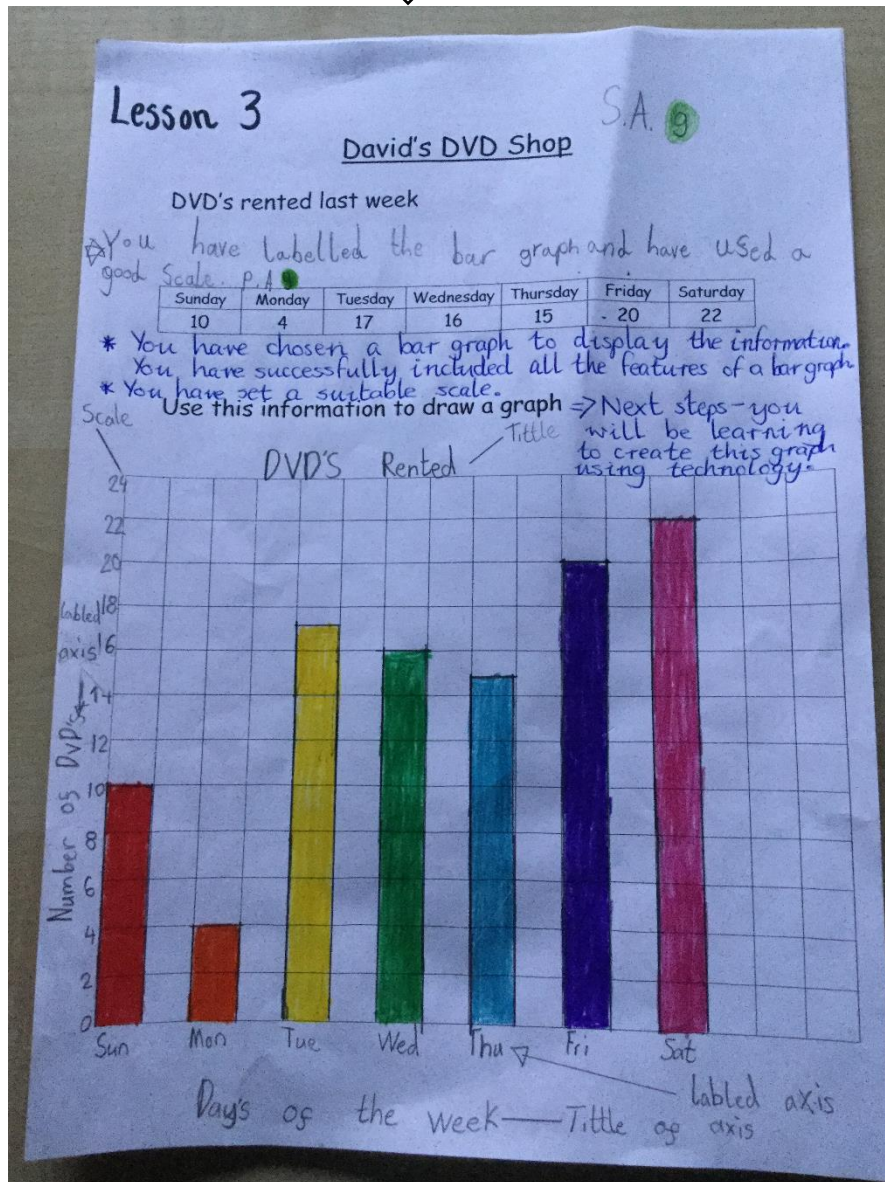 Lesson 3
S.A. g
David's DVD Shop
DVD's rented last week
You have labelled the bar graph and have used a
good scale. P.A
Sunday Monday Tuesday Wednesday Thursday Friday Saturday
10 4 17 16 15 - 20 22
* You have chosen a bar graph to display the information.
You have successfully included all the features of a bar graph
* You have set a suitable scale.
Use this information to draw a graph ⇒ Next steps - you
will be learning
to create this graph
using technology.
Scale
Tittle
DVD'S Rented
24
22
20
18
16
14
12
10
8
6
4
2
0
labled
axis
Number of DVD's
Sun Mon Tue Wed Thu Fri Sat
labled axis
Day's of the week — Tittle of axis